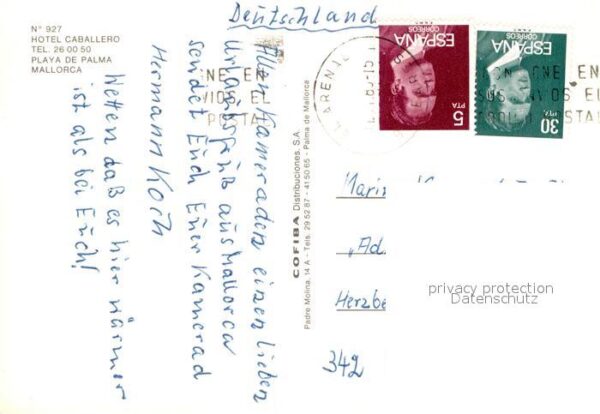 Nº 927
HOTEL CABALLERO
TEL. 26 00 50
PLAYA DE PALMA
MALLORCA
Deutschland
Allen Kameraden einen lieben
Urlaubsgruß aus Mallorca
sendet Euch Euer Kamerad
Hermann Koch
Wetten daß es hier wärmer
ist als bei Euch!
COFIBA Distribuciones, S.A.
Padre Molina, 14 A - Tels. 29 52 87 - 41 50 65 - Palma de Mallorca
ESPAÑA
CORREOS
5
PTA
ESPAÑA
CORREOS
30
PTA
EL ARENAL
Marin
„Ad
Herzbe
342
privacy protection
Datenschutz